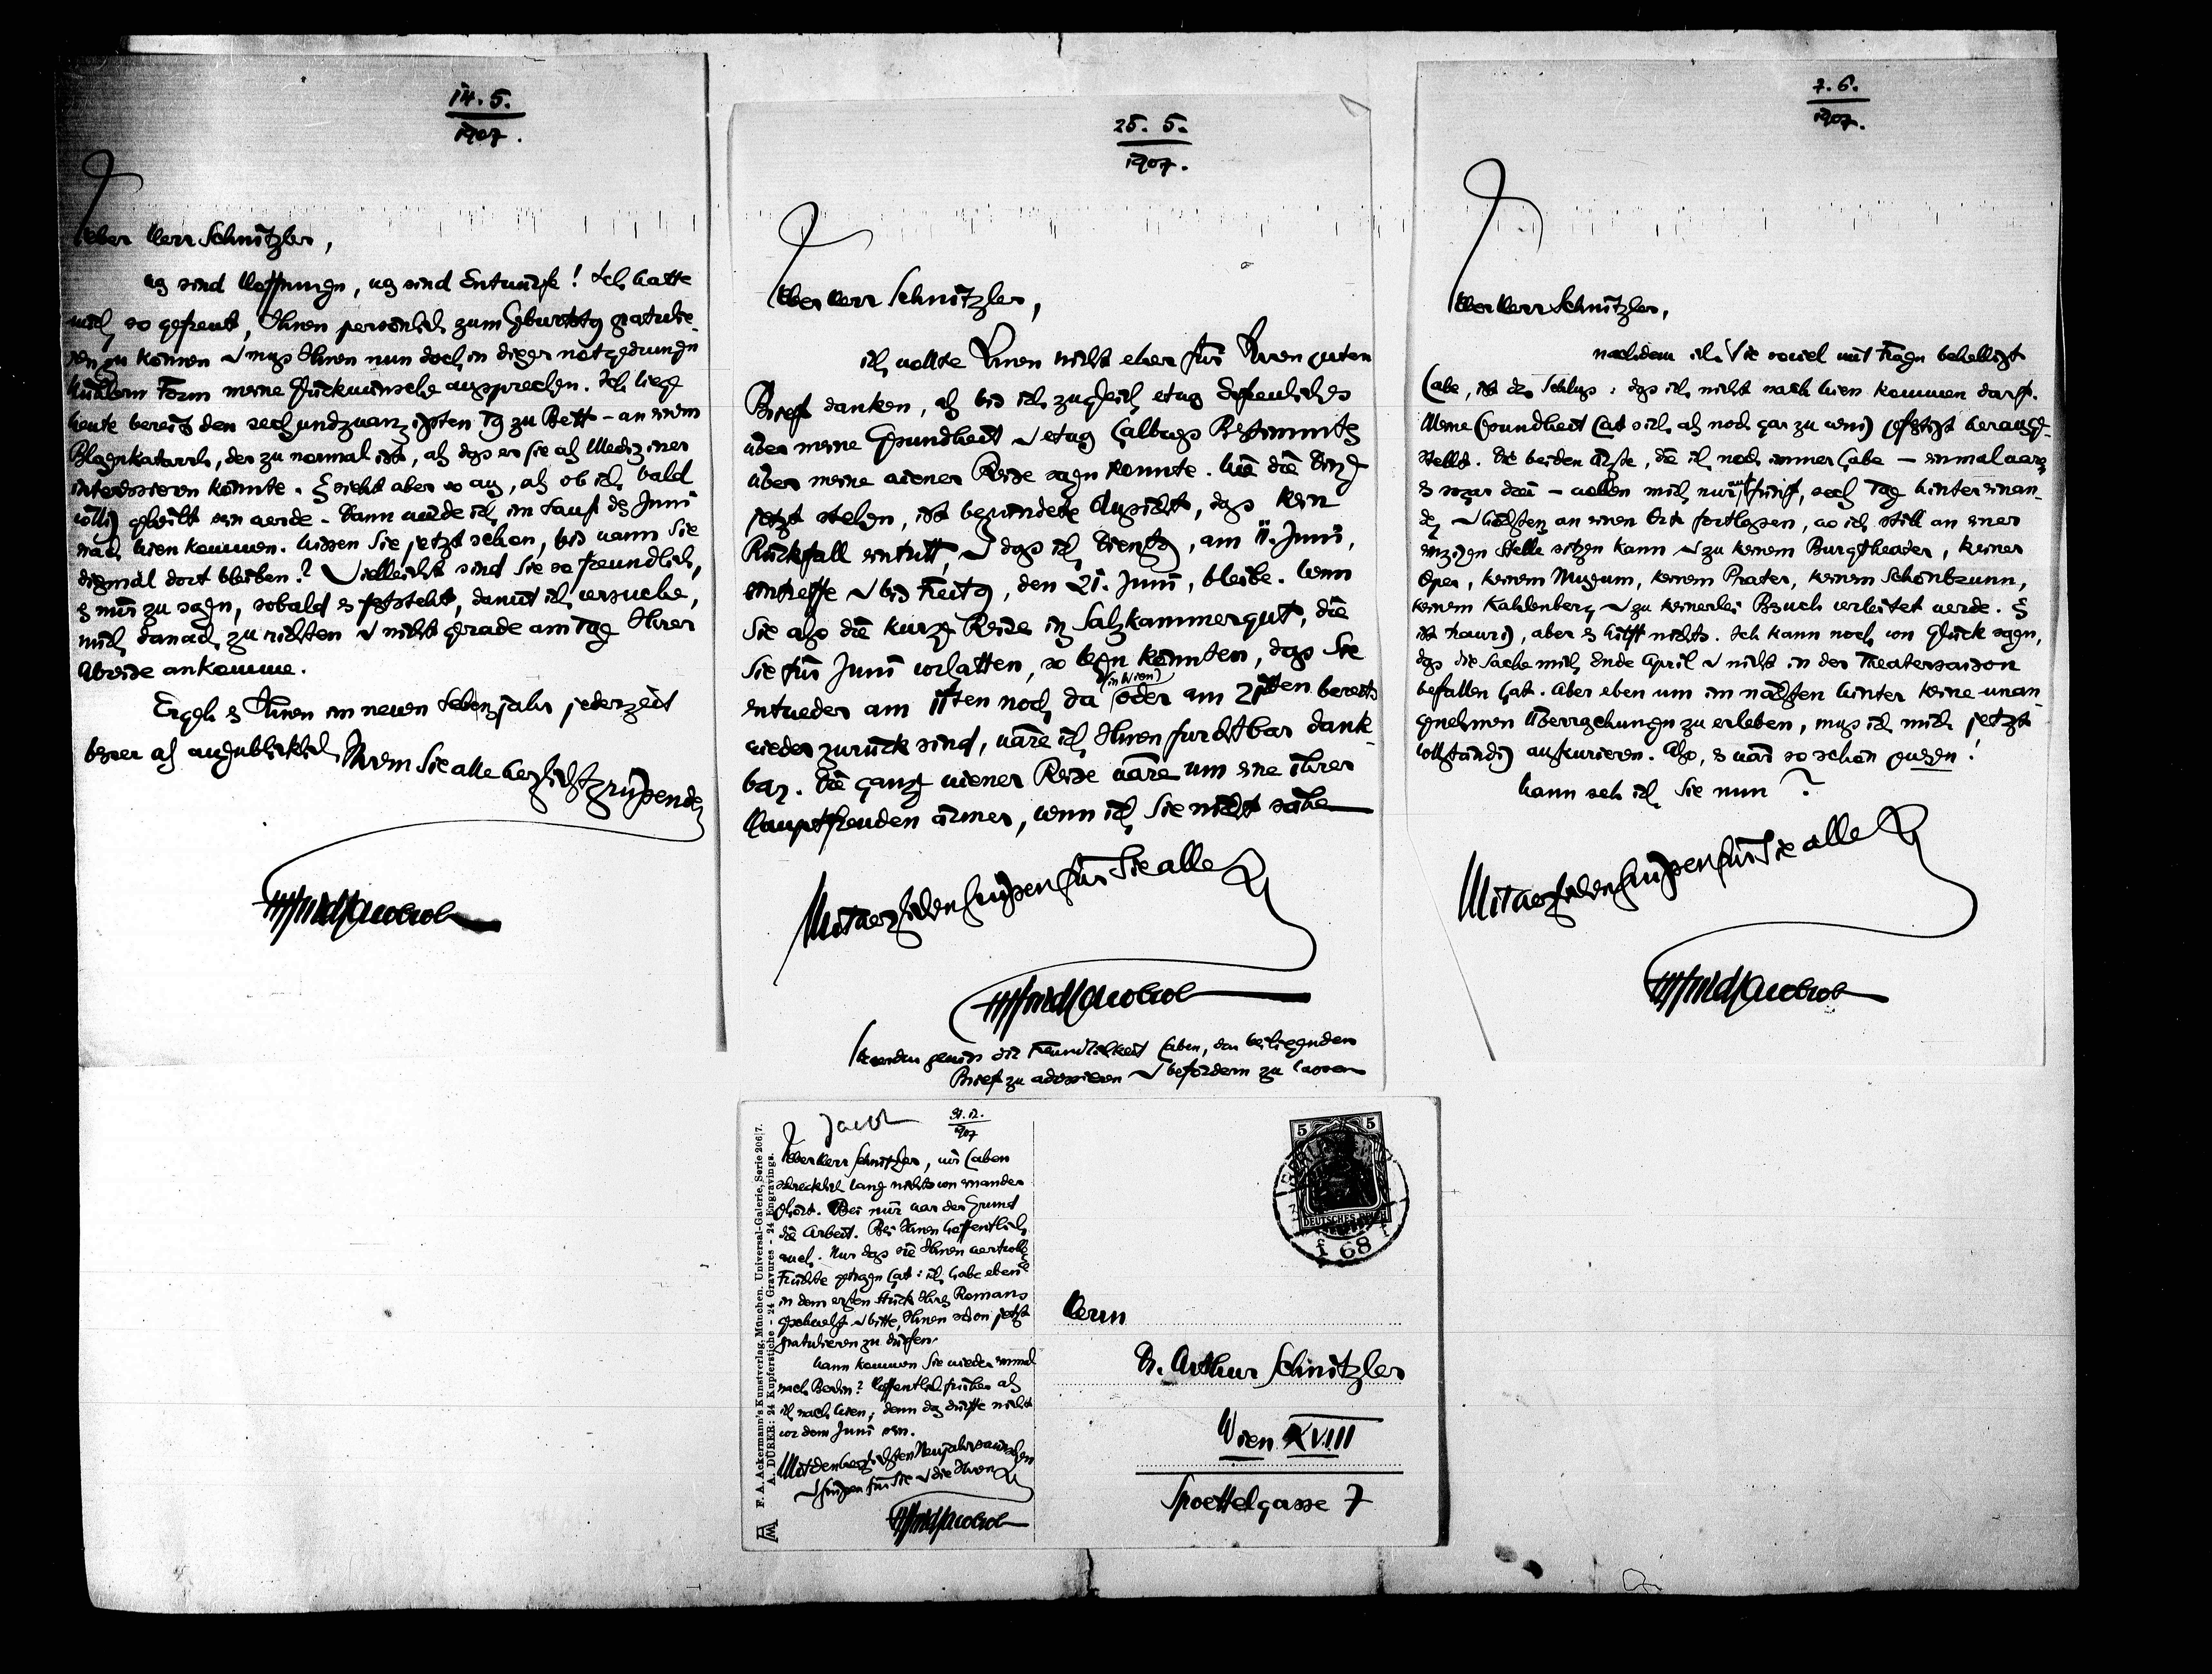 14. 5.
1907.
Lieber Herr Schnitzler,
was sind Hoffnungen, was sind Entwürfe! Ich hatte
mich so gefreut, Ihnen persönlich zum Geburtstag gratulie-
ren zu können u muss Ihnen nun doch in dieser notgedrungen
kühlern Form meine Glückwünsche aussprechen. Ich liege
heute bereits den sechsundzwanzigsten Tag zu Bett – an einem
Blasenkatarrh, der zu normal ist, als dass er Sie als Mediziner
interessieren könnte. Es sieht aber so aus, als ob ich bald
völlig geheilt sein werde. Dann würde ich im Lauf des Juni
nach Wien kommen. Wissen Sie jetzt schon, bis wann Sie
diesmal dort bleiben? Vielleicht sind Sie so freundlich,
es mir zu sagen, sobald es feststeht, damit ich versuche,
mich danach zu richten u nicht gerade am Tag Ihrer
Abreise ankomme.
Ergeh es Ihnen im neuen Lebensjahr jederzeit
besser als augenblicklich Ihrem Sie alle herzlichst grüssenden
Siegfried Jacobsohn
25. 5.
1907.
Lieber Herr Schnitzler,
ich wollte Ihnen nicht eher für Ihren guten
Brief danken, als bis ich zugleich etwas Erfreuliches
über meine Gesundheit u etwas halbwegs Bestimmtes
über meine wiener Reise sagen konnte. Wie die Dinge
jetzt stehen, ist begründete Aussicht, dass kein
Rückfall eintritt, u dass ich Dienstag, am 11. Juni,
eintreffe u bis Freitag, den 21. Juni, bleibe. Wenn
Sie also die kurze Reise ins Salzkammergut, die
Sie für Juni vorhatten, so legen könnten, dass Sie
entweder am 11ten noch da (in Wien) oder am 21sten bereits
wieder zurück sind, wäre ich Ihnen furchtbar dank-
bar. Die ganze wiener Reise wäre um eine ihrer
Hauptfreuden ärmer, wenn ich Sie nicht sähe
Mit herzlichen Grüssen für Sie alle Ihr
Siegfried Jacobsohn
Sie werden gewiss die Freundlichkeit haben, den beiliegenden
Brief zu adressieren u befördern zu lassen
7. 6.
1907.
Lieber Herr Schnitzler,
nachdem ich Sie soviel mit Fragen behelligt
habe, ist der Schluss: dass ich nicht nach Wien kommen darf.
Meine Gesundheit hat sich als noch gar zu wenig gefestigt herausge-
stellt. Die beiden Ärzte, die ich noch immer habe – einmal warens
es sogar drei – wollen mich nur auf fünf, sechs Tage hintereinan-
der u höchstens an einen Ort fortlassen, wo ich still an einer
einzigen Stelle sitzen kann u zu keinem Burgtheater, keiner
Oper, keinem Museum, keinem Prater, keinem Schönbrunn,
keinem Kahlenberg u zu keinerlei Besuch verleitet werde. Es
ist traurig, aber es hilft nichts. Ich kann noch von Glück sagen,
dass die Sache mich Ende April u nicht in der Theatersaison
befallen hat. Aber eben um im nächsten Winter keine unan-
genehmen Überraschungen zu erleben, muss ich mich jetzt
vollständig auskurieren. Also, es wär so schön gewesen!
Wann seh ich Sie nun?
Mit herzlichen Grüssen für Sie alle Ihr
Siegfried Jacobsohn
F. A. Ackermann's Kunstverlag, München. Universal-Galerie, Serie 206|7.
A. DÜRER: 24 Kupferstiche - 24 Gravures - 24 Engravings.
Jacobs
31. 12.
1907
Lieber Herr Schnitzler, wir haben
schrecklich lang nichts von einander
gehört. Bei mir war der Grund
die Arbeit. Bei Ihnen hoffentlich
auch. Nur dass sie Ihnen wertvolle
Früchte getragen hat: ich habe eben
in dem ersten Stück Ihres Romans
geschwelgt u bitte, Ihnen schon jetzt
gratulieren zu dürfen.
Wann kommen Sie wieder einmal
nach Berlin? Hoffentlich früher als
ich nach Wien; denn das dürfte nicht
vor dem Juni sein.
Mit den herzlichsten Neujahrswünschen
u Grüssen für Sie u die Ihren Ihr
Siegfried Jacobsohn
5 5
DEUTSCHES REICH
BERLIN
f 68 f
Herrn
Dr. Arthur Schnitzler
Wien XVIII
Spoettelgasse 7